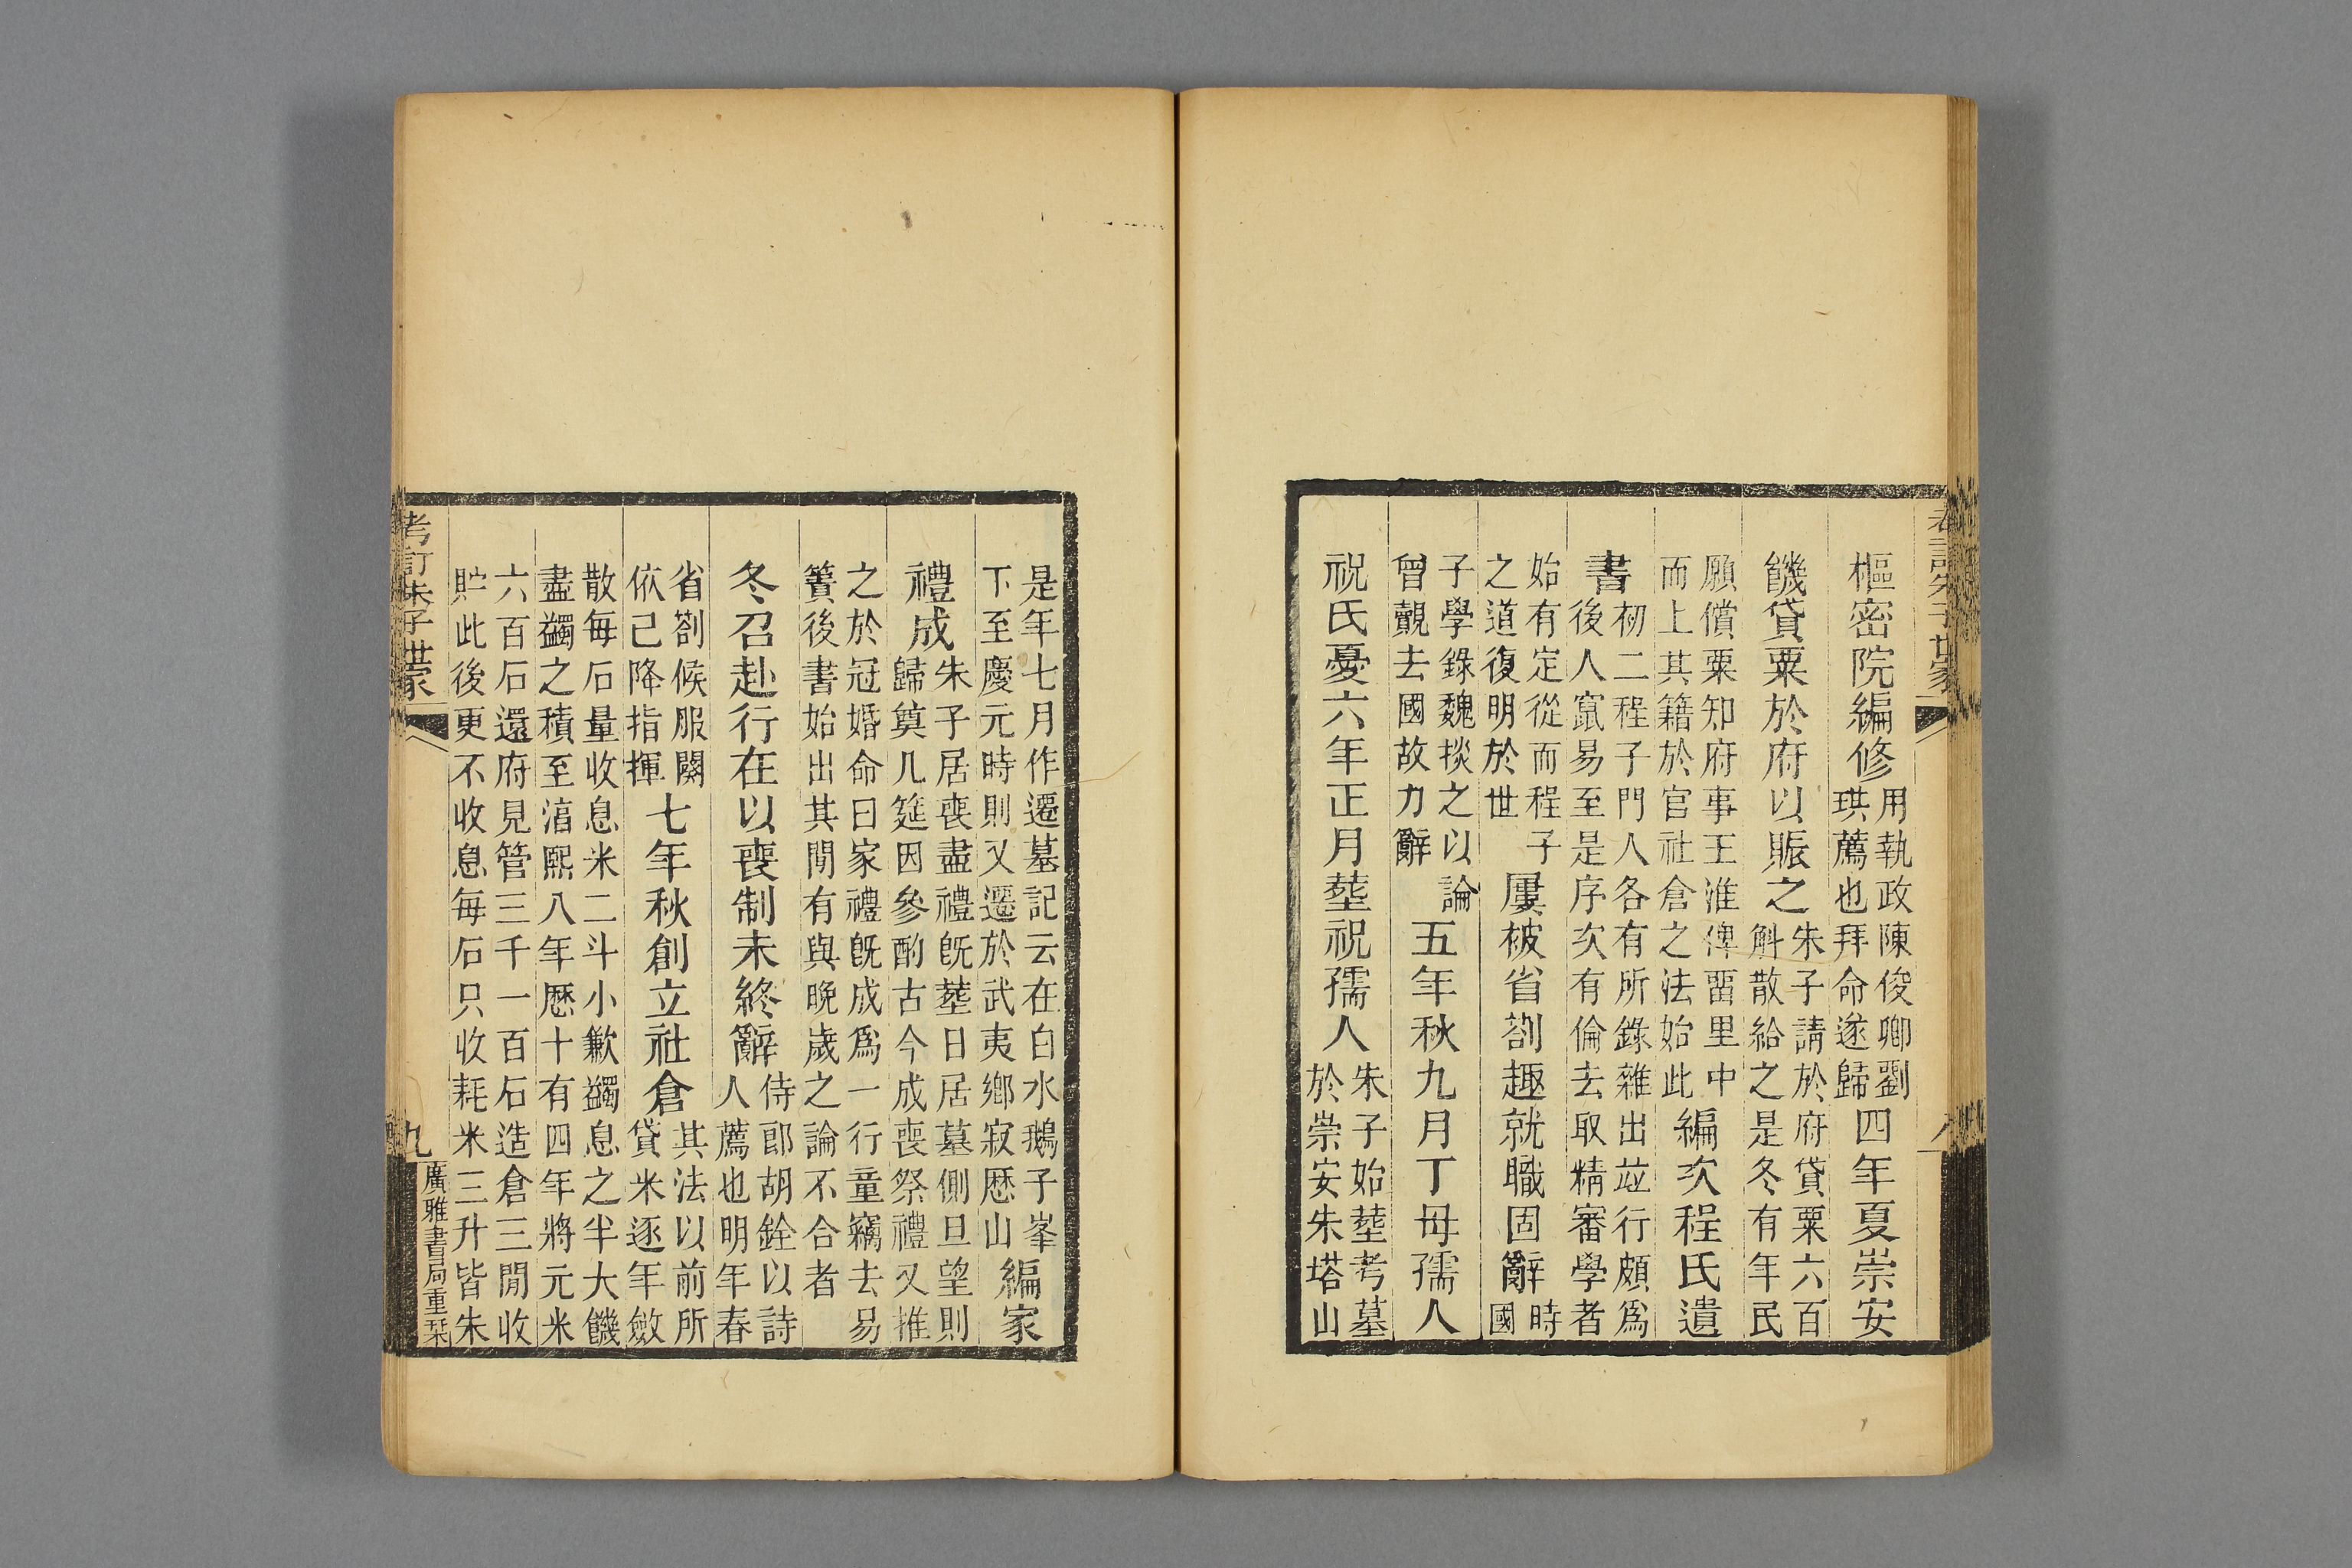 考訂朱子世家
樞密院編修用執政陳俊卿劉珙薦也拜命遂歸四年夏崇安
饑貸粟於府以賑之朱子請於府貸粟六百斛散給之是冬有年民
願償粟知府事王淮俾畱里中而上其籍於官社倉之法始此編次程氏遺
書初二程子門人各有所錄雜出竝行頗爲後人竄易至是序次有倫去取精審學者
始有定從而程子之道復明於世屢被省劄趣就職固辭時國
子學錄魏掞之以論曾覿去國故力辭五年秋九月丁母孺人
祝氏憂六年正月塟祝孺人朱子始塟考墓於崇安朱塔山
是年七月作遷墓記云在白水鵝子峯下至慶元時則又遷於武夷鄉寂歷山編家
禮成朱子居喪盡禮旣塟日居墓側旦望則歸奠几筵因參酌古今成喪祭禮又推
之於冠婚命曰家禮旣成爲一行童竊去易簀後書始出其閒有與晚歲之論不合者
冬召赴行在以喪制未終辭侍郎胡銓以詩人薦也明年春
省劄候服闋依已降指揮七年秋創立社倉其法以前所貸米逐年斂
散每石量收息米二斗小歉蠲息之半大饑盡蠲之積至湻熙八年歷十有四年將元米
六百石還府見管三千一百石造倉三閒收貯此後更不收息每石只收耗米三升皆朱
考訂朱子世家
九
廣雅書局重栞